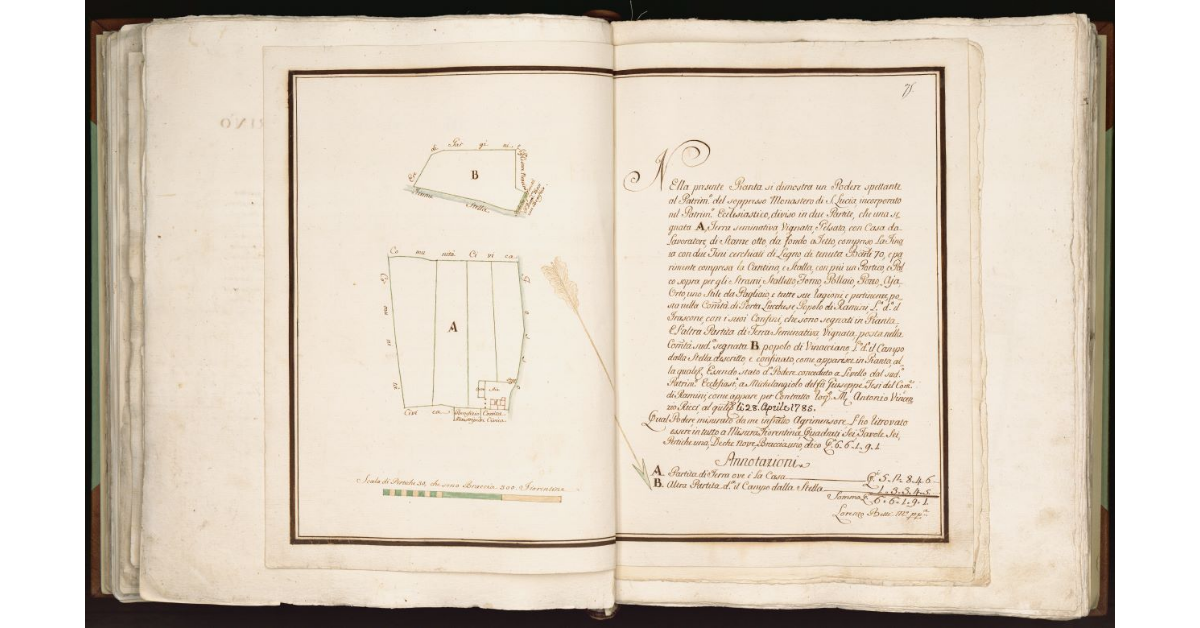 di Par gi ni
B
Fiume
Stella
Co mu nità Ci vi ca
A
Civi ca
Scala di Pertiche 30, che sono Braccia 300 Fiorentine
71.
NElla presente Pianta si dimostra un Podere spettante
al Patrim.º del soppresso Monastero di S. Lucia, incorporato
nel Patrim.º Ecclesiastico, diviso in due Partite, che una se
gnata A, Terra seminativa Vignata, Pilsata, con Casa da
Lavoratore, di Stanze otto, da fondo a Tetto, compreso la
va con due Tini cerchiati di Legno di tenuta Barili 70, e pa
rimente compresa la Cantina, e Stalla, con più un Portico, e Pol
co sopra per gli Strami, Stalletto, Forno, Pollino, Pozzo, Aja
Orto, uno Stile da Pagliaio, e tutte sue ragioni, e pertinenze, po
sta nella Com.tà di Porta Lucchese Popolo di Ramini, L.º d.º il
Frascone, con i suoi Confini, che sono segnati in Pianta.
E l'altra Partita di Terra Seminativa, Vignata, posta nella
Com.tà sud.ª segnata B. popolo di Vinacciano L.º d.º il Campo
dalla Stella descritto, e confinato come apparisce in Pianta, al
la quale, Essendo stato d.º Podere conceduto a Livello dal sud.º
Patrim.º Ecclesiast.º, a Michelangiolo del fù Giuseppe Tesi del Com.º
di Ramini, come appare per Contratto rog.º M. Antonio Vincen
zio Pacci al li 28. Aprile 1785.
Qual Podere misurato da me infratto Agrimensore, l'ho ritrovato
essere in tutto a Misura Fiorentina, Quadrati Sei, Tavole, Sei,
Pertiche una, Deche Nove, Braccia uno, dico Q.ti 6. 6. 1. 9. 1
Annotazioni
A. Partita di Terra ove è la Casa Q.ti 5. 1. 8. 4. 6
B. Altra Partita d.ª il Campo dalla Stella 1. 3. 3. 4. 5
Somma Q.ti 6. 6. 1. 9. 1
Lorenzo